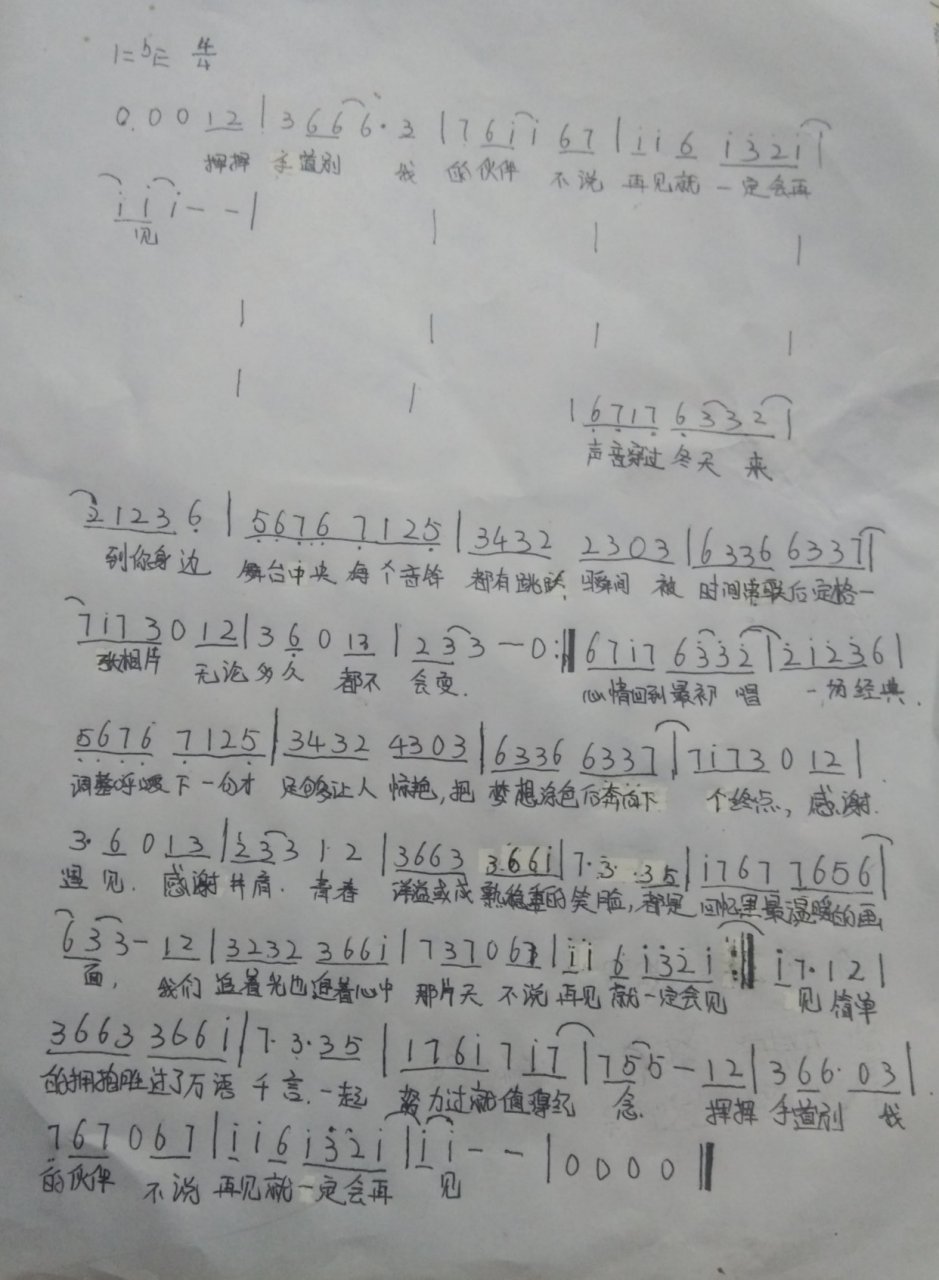 1=♭E 4/4
0 0 0 12 | 3 66 6· 3 | 7 6i i 67 | i i 6 i32i |
挥挥 手道别 我 的伙伴 不说 再见就 一定会再
i i i - - |
见
| 6717 6332 |
声音穿过 冬天 来
21236 | 5676 7125 | 3432 2303 | 6336 6337 |
到你身边 舞台中央 每个音符 都有跳跃 瞬间 被 时间串联后定格一
7173 0 12 | 3 6 0 13 | 2 3 3 - 0 :‖ 67i7 6332 | 2i236 |
张相片 无论多久 都不 会变. 心情回到最初 唱 一场经典.
5676 7125 | 3432 4303 | 6336 6337 | 7i73 0 12 |
调整呼吸 下一句才 足够让人 惊艳,把 梦想涂色后奔向下 个终点, 感谢.
3· 6 0 13 | 233 1· 2 | 3663 366i | 7· 3· 35 | i767 7656 |
遇见. 感谢并肩. 青春 洋溢或成熟稳重的笑脸,都是 回忆里最温暖的画
6 3 3 - 12 | 3232 366i | 737067 | i i 6 i32i :‖ i 7· 12 |
面, 我们 追着光也追着心中 那片天 不说 再见 就一定会见 见 简单
3663 366i | 7· 3· 35 | 176i 7 i7 | 7 5 5 - 12 | 3 66· 03 |
的拥抱胜过了万语 千言.一起 努力过就值得纪 念. 挥挥 手道别 我
767 0 67 | i i 6 i32i | i i - - | 0 0 0 0 ‖
的伙伴 不说 再见就一定会再 见